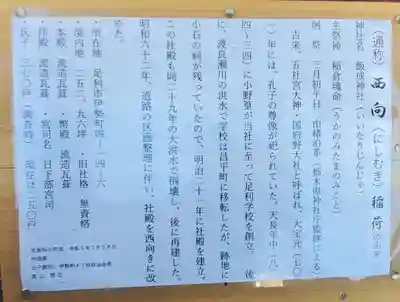 (通称) 西向(にしむき)稲荷
神社名 飯成神社(いいなりじんじゃ)
主祭神 稲倉魂命(うかのみたまのみこと)
例祭 三月初午日 由緒沿革(栃木県神社庁監修による)
古来、五社宮大神・国府野大社と呼ばれ、大宝元(七〇
一)年には、孔子の尊像が祀られていた。天長年中(八二
四~三四)に小野篁が当社に至って足利学校を創立、後
に、渡良瀬川の洪水で学校は昌平町に移転したが、跡地に
小石の祠が残っていたので、明治二十一年に社殿を建立。
この社殿も同二十九年の大洪水で倒壊し、後に再建した。
昭和六十二年、道路の区画整理に伴い、社殿を西向きに改
めた。
・所在地 足利市伊勢町四-四-六
・境内地 二五二、九六坪 ・旧社格 無資格
・本殿 流造瓦葺 ・幣殿 流造瓦葺
・拝殿 流造瓦葺 ・宮司名 日下部宮司
・氏子